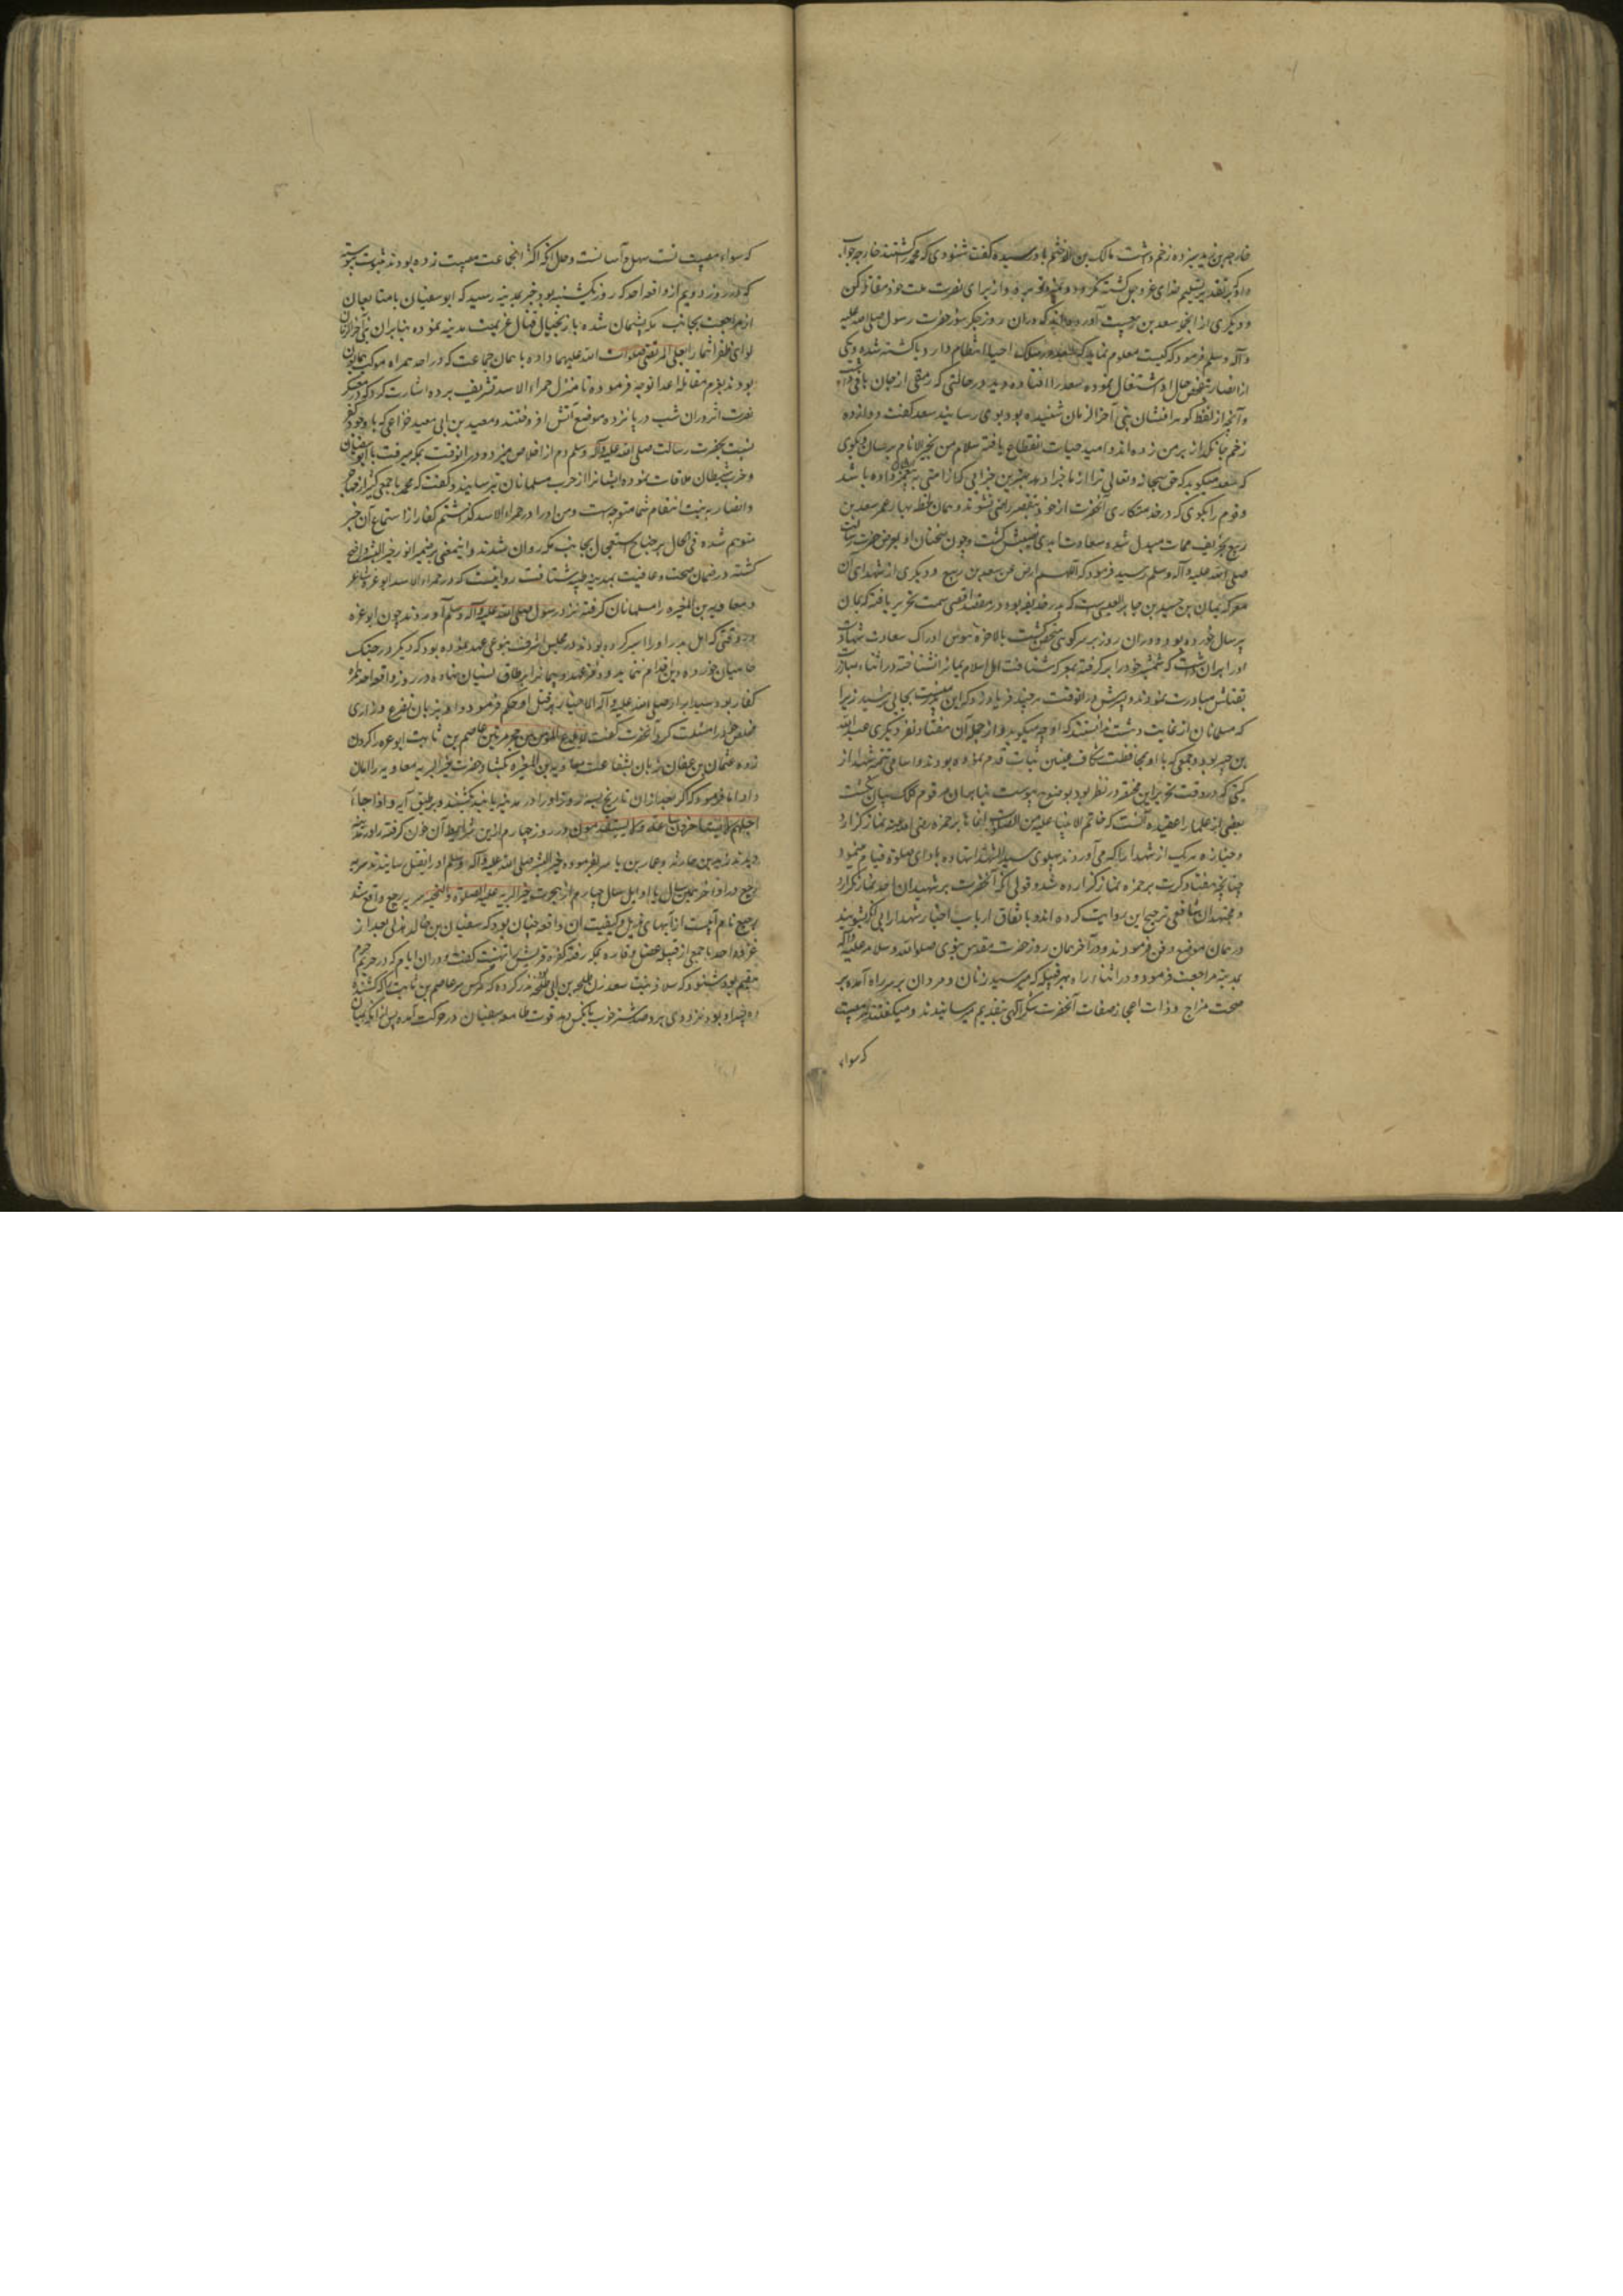 خارجة بن زید سیزده زخم داشت مالک بن الدخشم باو رسیده گفت شنودی که محمد کشته شد خارجه جواب
داد که بر تقدیر تسلیم خدای عزوجل کشته نگردد و نمیرد تو برو و از برای نصرت ملت خود مقاتله کن
و دیگری از انجمله سعد بن ربیعست آورده‌اند که دران روز جگرسوز حضرت رسول صلی الله علیه
وآله وسلم فرمود که کیست معلوم نماید که سعد در سلک احیا انتظام دارد یا کشته شده و یکی
از انصار بتفحص حال او اشتغال نموده سعد را افتاده دید در حالتی که رمقی از جان باقی داشت
و آنچه از لفظ گوهرافشان نبی آخر الزمان شنیده بود بوی رسانید سعد گفت دوازده
زخم جانگداز بر من زده‌اند و امید حیات انقطاع یافته سلام من بخیر الانام برسان و بگوی
که سعد میگوید که حق سبحانه وتعالی ترا از ما جزا دهد بهترین جزایی که از امتی به پیغمبر داده باشد
و قوم را بگوی که در خدمتکاری آنحضرت از خود بتقصیر راضی نشوند و همان لحظه بهار عمر سعد بن
ربیع بخریف ممات مبدل شده سعادت ابدی نصیبش گشت و چون سخنان او بعرض حضرت رسالت
صلی الله علیه وآله وسلم رسید فرمود که اللهم ارض عن سعد بن ربیع و دیگری از شهدای آن
معرکه یمان بن حسیل بن جابر العبسی است که پدر حذیفه بود در مقصد اقصی سمت تحریر یافته که یمان
پیر سال خورده بود و دران روز بر سر کوهی متحصن گشت بالاخره هوس ادراک سعادت شهادت
او را بران داشت که شمشیر خود را برگرفته بمعرکه شتافت اهل اسلام یمان را نشناخته در اثناء مبارزت
بقتلش مبادرت نمودند و پسرش در انوقت هرچند فریاد زد که این پدر منست بجایی نرسید زیرا
که مسلمانان از غایت دهشت ندانستند که او چه میگوید و از جمله آن هفتاد نفر دیگری عبدالله
بن جبیر بود و جمعی که با او بمحافظت شکاف عینین ثبات قدم نموده بودند و اسامی تتمه شهدا از
کتبی که در وقت تحریر این مختصر در نظر بود بوضوح نپیوست بنابران مرقوم کلک بیان نگشت
بعضی از علما را عقیده آنست که خاتم الانبیا علیه من الصلوات انماها بر حمزه رضی الله عنه نماز گزارد
و جنازه هریک از شهدا را که می‌آوردند پهلوی سید الشهدا نهاده بادای صلوة قیام مینمود
چنانچه هفتاد کرت بر حمزه نماز گزارده شد و قولی آنکه آنحضرت بر شهیدان احد نماز نگزارد
و مجتهدان شافعی ترجیح این روایت کرده‌اند و باتفاق ارباب اخبار شهدا را بی آنکه بشویند
در همان موضع دفن فرمودند و در آخر همان روز حضرت مقدس نبوی صلوات الله وسلامه علیه وآله
بمدینه مراجعت فرمود و در اثناء راه بهر قبیله که میرسید زنان و مردان بر سر راه آمده بر
صحت مزاج و ذات اعجاز صفات آنحضرت شکر الهی بتقدیم میرسانیدند و میگفتند هر مصیبتی
که سواء
که سواء مصیبت تست سهل و آسانست و حال آنکه اکثر انجماعت مصیبت زده بودند ثبوت پیوسته
که در روز دویم از واقعه احد که روز یکشنبه بود خبر بمدینه رسید که ابوسفیان با متابعان
از مراجعت بجانب مکه پشیمان شده باز بخیال قتال عزیمت مدینه نموده بنابران نبی آخر الزمان
لوای ظفر انتما را بعلی المرتضی صلوات الله علیهما داده با همان جماعت که در احد همراه موکب همایون
بودند بعزم مقابله اعدا توجه فرموده تا منزل حمراء الاسد تشریف برده اشارت کرد که در معسکر
نصرت اثر دران شب در پانزده موضع آتش افروختند و معبد بن ابی معبد خزاعی که باوجود کفر
نسبت بحضرت رسالت صلی الله علیه وآله وسلم دم از اخلاص میزد و در انوقت بمکه میرفت با ابوسفیان
و حزب شیطان ملاقات نموده ایشانرا از حرب مسلمانان بترسانید و گفت که محمد با جمعی کثیر از مهاجر
وانصار به نیت انتقام شما متوجه است و من او را در حمراء الاسد گذاشتم کفار از استماع آن خبر
متوهم شده فی الحال بر جناح استعجال بجانب مکه روان شدند و اینمعنی بر ضمیر انور خیر البشر واضح
گشته در ضمان صحت و عافیت بمدینه طیبه شتافت روایتست که در حمراء الاسد ابو عزه شاعر
و معاویة بن المغیره را مسلمانان گرفته نزد رسول صلی الله علیه وآله وسلم آوردند چون ابو عزه
در وقتی که اهل بدر او را اسیر کرده بودند در مجلس اشرف نبوی عهد نموده بود که دیگر در جنگ
حامیان حوزه دین اقدام ننماید و دفتر عهد و پیمانرا بر طاق نسیان نهاده در روز واقعه احد همراه
کفار بود سید ابرار صلی الله علیه وآله الاخیار بر قتل او حکم فرمود و او بزبان تضرع و زاری
خلاص خود را مسئلت کرد آنحضرت گفت لایلدغ المؤمن من جحر مرتین عاصم بن ثابت ابو عزه را گردن
زده عثمان بن عفان زبان بشفاعت معاویة بن المغیره گشاد حضرت خیر البریه معاویه را امان
داد اما فرمود که اگر بعد ازان تاریخ بسه روز او را در مدینه یابند بکشند و بر طبق آیه و اذا جاء
اجلهم لایستاخرون ساعة ولا یستقدمون در روز چهارم ازین شرایط آن خون گرفته را در مدینه
دیدند زید بن حارثه و عمار بن یاسر بفرموده خیر البشر صلی الله علیه وآله وسلم او را بقتل رسانیدند سریه
رجیع در اواخر همین سال یا اوایل سال چهارم از هجرت خیر البریه علیه الصلوة والتحیه سریه رجیع واقع شد
و رجیع نام آبیست از آبهای هذیل و کیفیت آن واقعه چنان بود که سفیان بن خالد هذلی بعد از
غزوه احد با جمعی از قبیله عضل و قاره بمکه رفته کفره قریش را تهنیت گفت و دران ایام که در حریم حرم
مقیم بود شنود که سلافه بنت سعد زن طلحة بن ابی طلحه نذر کرده که هرکس سر عاصم بن ثابت را که کشنده
دو پسر او بود نزد وی برد صد شتر خوب بانکس دهد قوت طامعه سفیان در حرکت آمده پس از آنکه بمیان